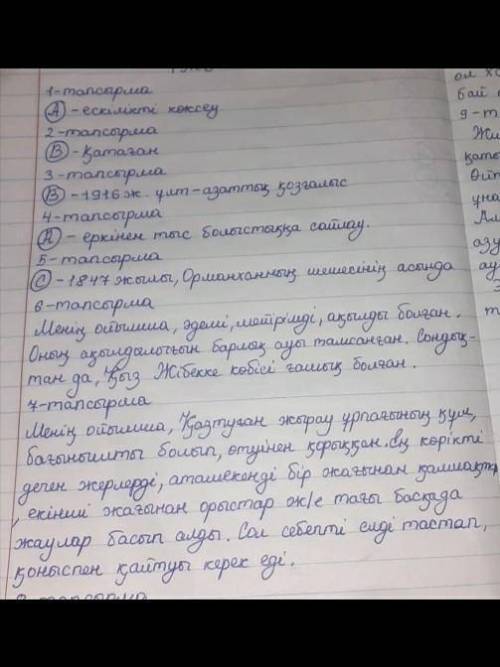 1-тапсырма
А - ескілікті көксеу
2-тапсырма
В - Қатаған
3-тапсырма
В - 1916 ж. ұлт-азаттық қозғалыс
4-тапсырма
А - еркінен тыс болыстыққа сайлау.
5-тапсырма
С - 1847 жылы, Орманханның шешесінің асында
6-тапсырма
Менің ойымша, әдемі, мейрімді, ақылды болған.
Оның ақылдылығын барлық ауыл тамсанған. Сондық-
тан да, Қыз Жібекке көбісі ғашық болған.
7-тапсырма
Менің ойымша, Қазтуған жырау ұрпағының құл,
бағынышты болып, өтуінен қорыққан. Ең көрікті
деген жерлерді, атамекенді бір жағынан қалмақтар
, екінші жағынан орыстар ж/е тағы басқада
жаулар басып алды. Сол себепті елді тастап,
қоныспен қайтуы керек еді.
ол
бай
9-т